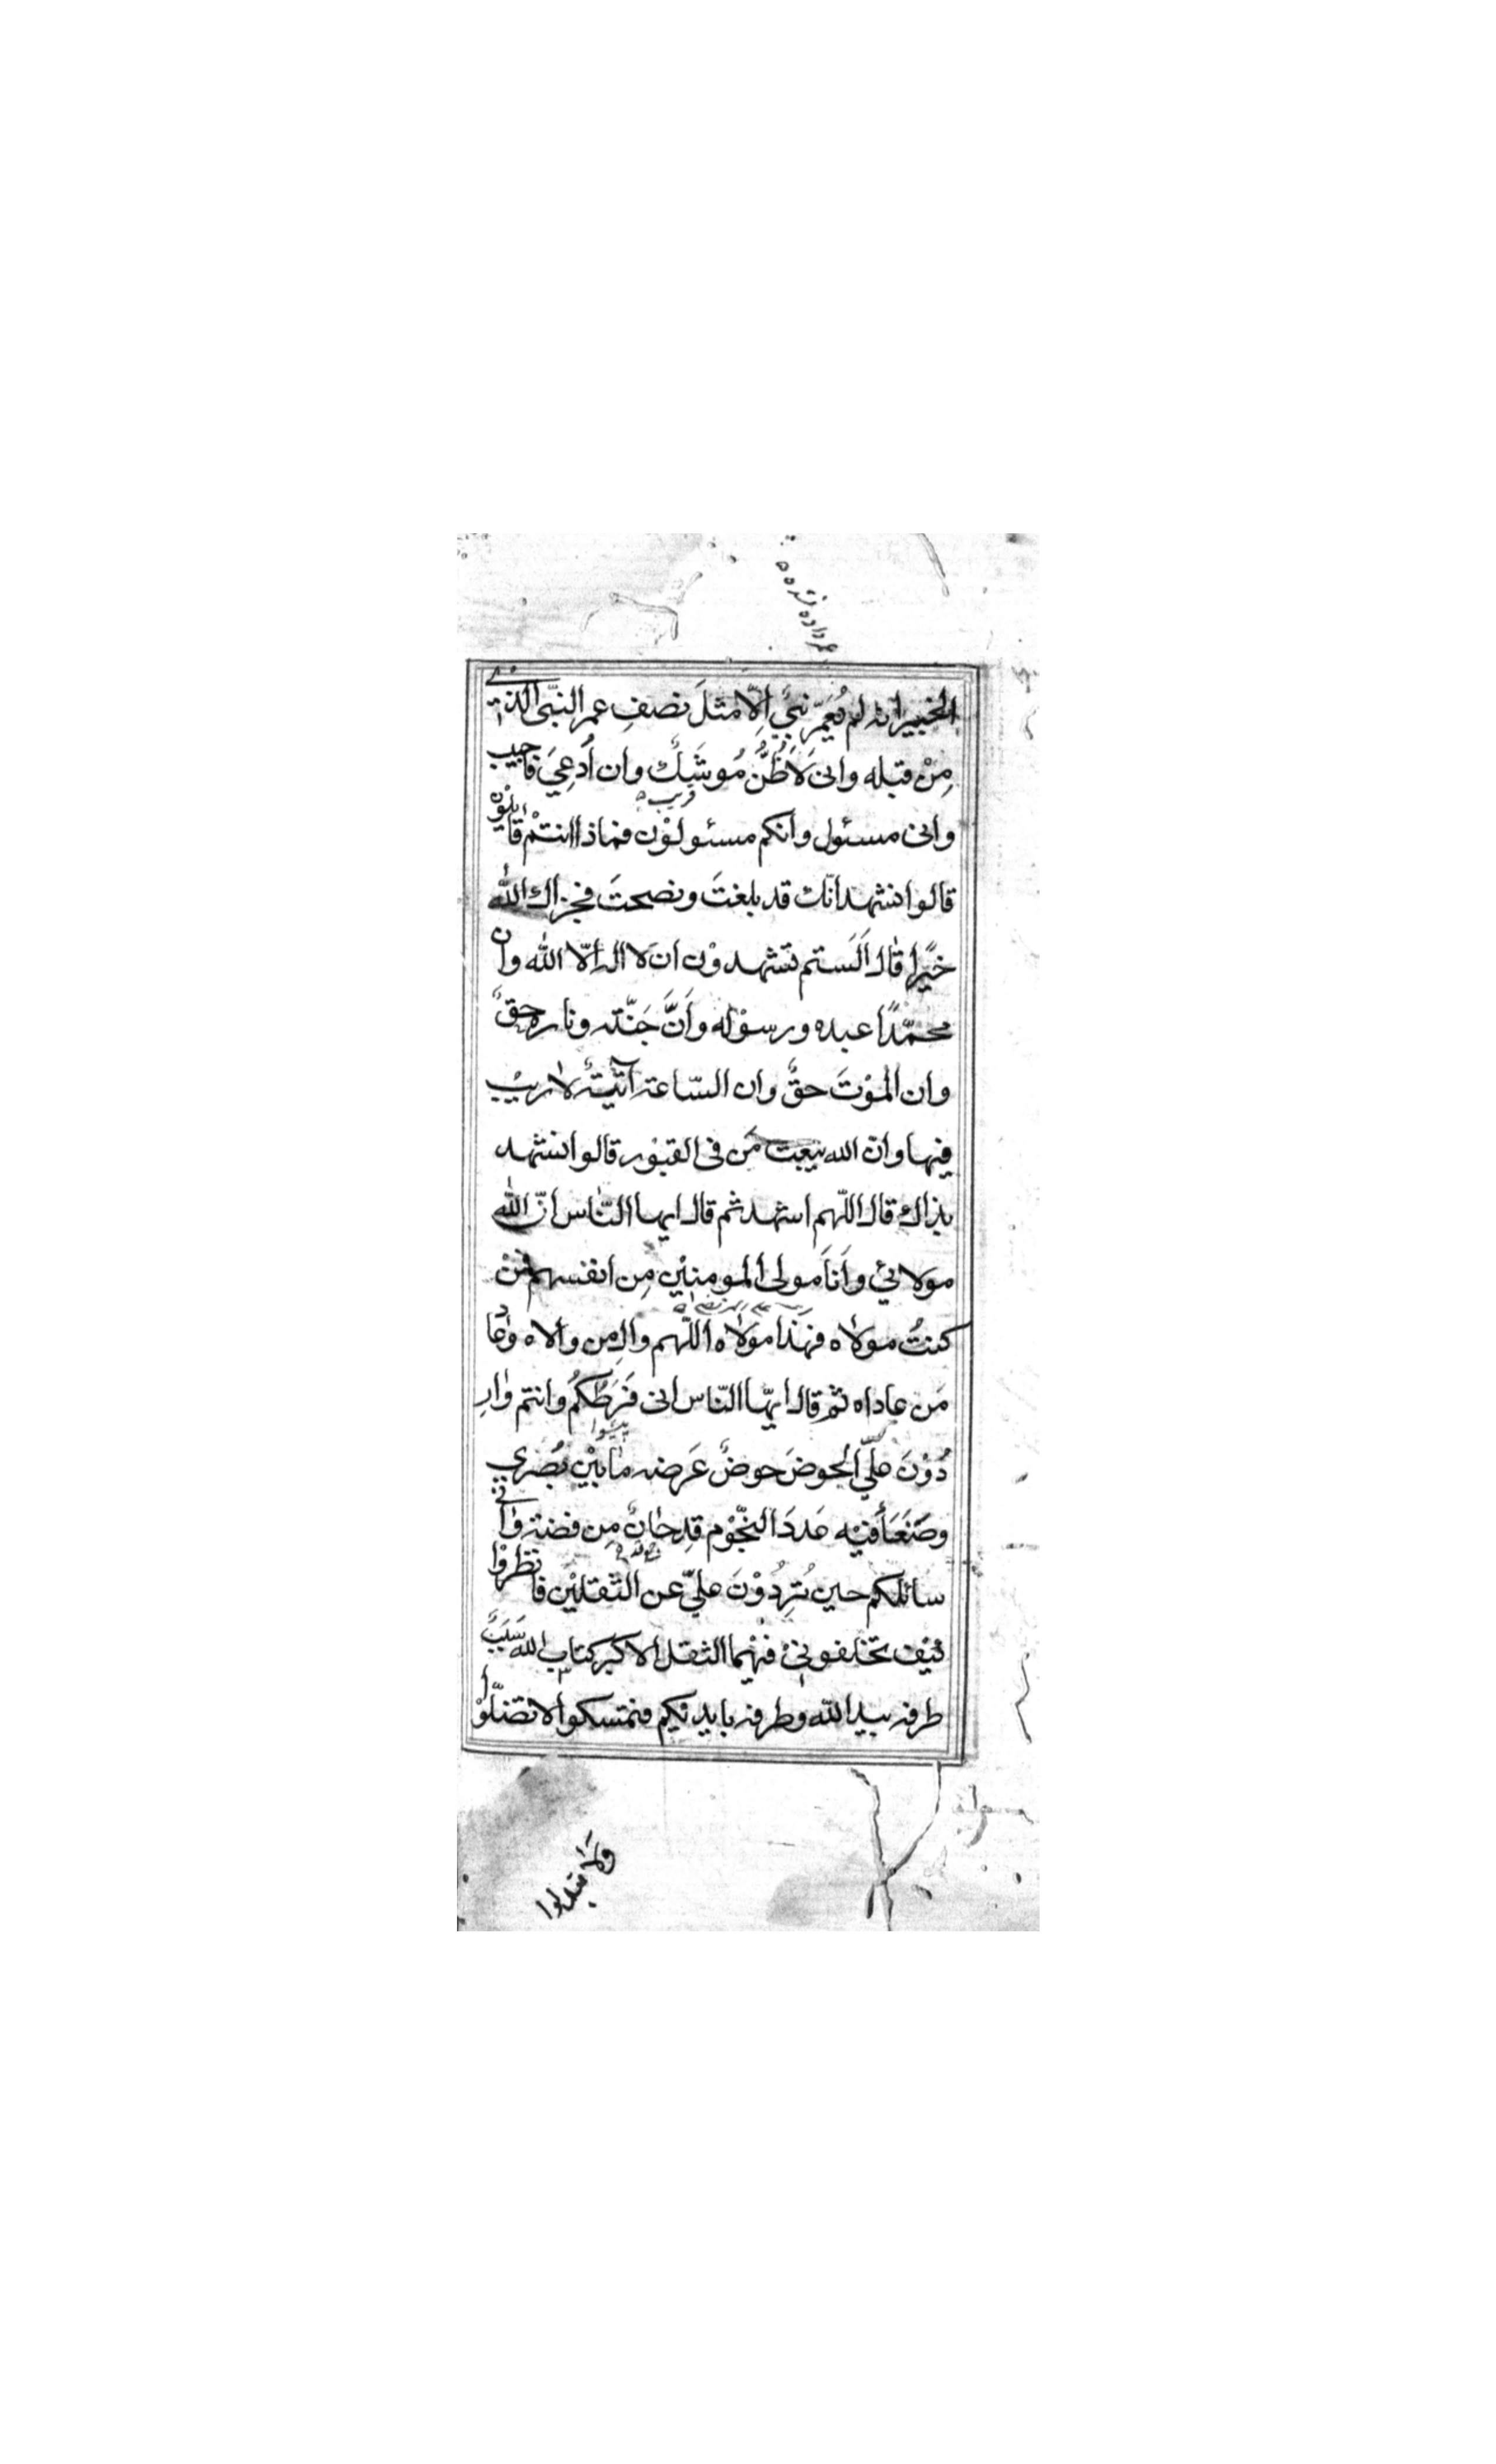 عمر داده نشده
الخبير انه لم يُعَمّر نبيٌ اِلّا مثلَ نصفِ عمر النبّى الذى
مِنْ قبله وانى لَاَظُنُّ مُوشَكٌ وان اُدعِيَ فاجيب
قريب
وانى مسئول وانكم مسئولوْن فماذا انتمْ قايلوْن
قالوا نشهد انّك قد بلغتَ ونصحتَ فجزاك اللّٰه
خيًرا قال اَلَستم تشهدوْن ان لا اله اِلّا اللّٰه وان
محمّدًا عبده ورسوْله وَاَنَّ جَنّته وناره حقٌ
وان المْوتَ حقٌّ وان السّاعة آتيةٌ لا ريْب
فيها وان الله يبعث مَن فى القبوْر قالوا نشهد
بذاك قال اللّهم اشهد ثم قال ايها النّاس انّ اللّٰه
مولائي وَاَنَا مولى المومنيْن مِن انفسهم فمَنْ
كنتُ مولاه فهَذا مولاه اللّهم والِ من والاه وعاد
مَن عاداه ثم قال ايّها النّاس انى فَرَطُكُم وانتم وارِ
دُوْنَ علَيّ الحوضَ حوضٌ عَرضه ما بَيْن بُصرٰي
وصَنعَاَ فيْه عددَ النّجوْم قدحانٌ مِن فضة وانى
سائلكم حين تُرِدُوْنَ عليّ عن الثقليْن فانظروْا
كيْف تخلفونىْ فيْهما الثقل الاكبر كتاب الله سَبَبٌ
طرفه بيد اللّه وطرفه بايديكم فتمتسكوا لا تضلّوْا
ولا تبدلوا